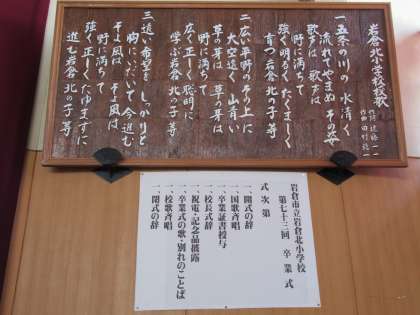 岩倉北小学校校歌
一、五条の川の 水清く
流れてやまぬ その姿
歌声は 歌声は
野に満ちて
強く明るく たくましく
育つ 岩倉 北の子等
二、広い平野の その上に
大空遠く 山青い
草の芽は 草の芽は
野に満ちて
広く正しく 聡明に
学ぶ岩倉 北の子等
三、遠い希望を しっかりと
胸にいだいて 今進む
そよ風は そよ風は
野に満ちて
強く 正しく たゆまずに
進む岩倉 北の子等
岩倉市立岩倉北小学校
第七十三回 卒業式
式次第
一、開式の辞
一、国歌斉唱
一、卒業証書授与
一、校長式辞
一、祝電・記念品披露
一、卒業式の歌・別れのことば
一、校歌斉唱
一、閉式の辞